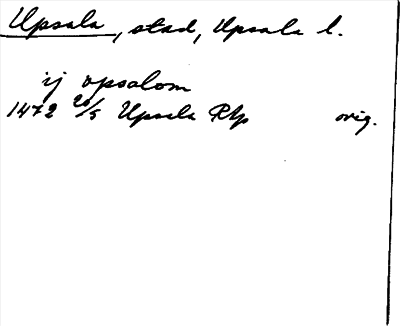 Upsala, stad, Upsala l.
ij vpsalom
1472 20/5 Upsala Rp orig.